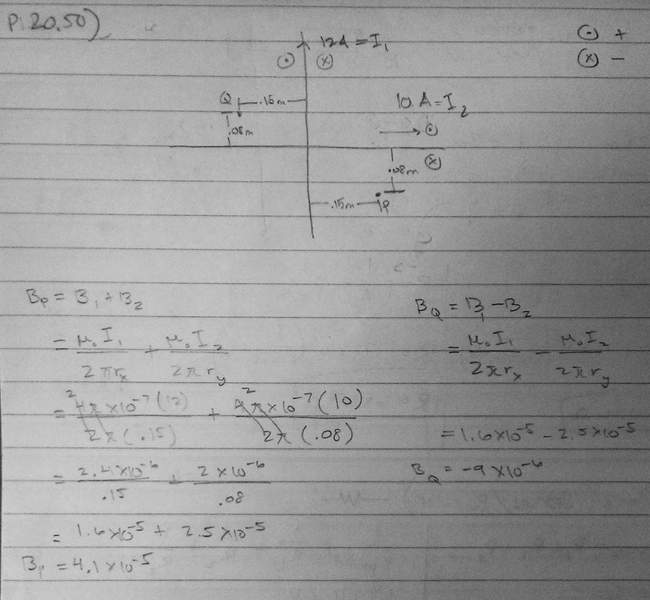 P. 20.50)
⊙ +
ⓧ −
12A = I₁
⊙ ⓧ
Q .15m
.08m
10 A = I₂
→ ⊙
ⓧ
.08m
.15m P
Bp = B₁ + B₂
= μ₀I₁/2πrₓ + μ₀I₂/2πr_y
= 2 4π×10⁻⁷(12)/2π(.15) + 2 4π×10⁻⁷(10)/2π(.08)
= 2.4×10⁻⁶/.15 + 2×10⁻⁶/.08
= 1.6×10⁻⁵ + 2.5×10⁻⁵
Bp = 4.1×10⁻⁵
B_Q = B₁ − B₂
= μ₀I₁/2πrₓ − μ₀I₂/2πr_y
= 1.6×10⁻⁵ − 2.5×10⁻⁵
B_Q = −9×10⁻⁶